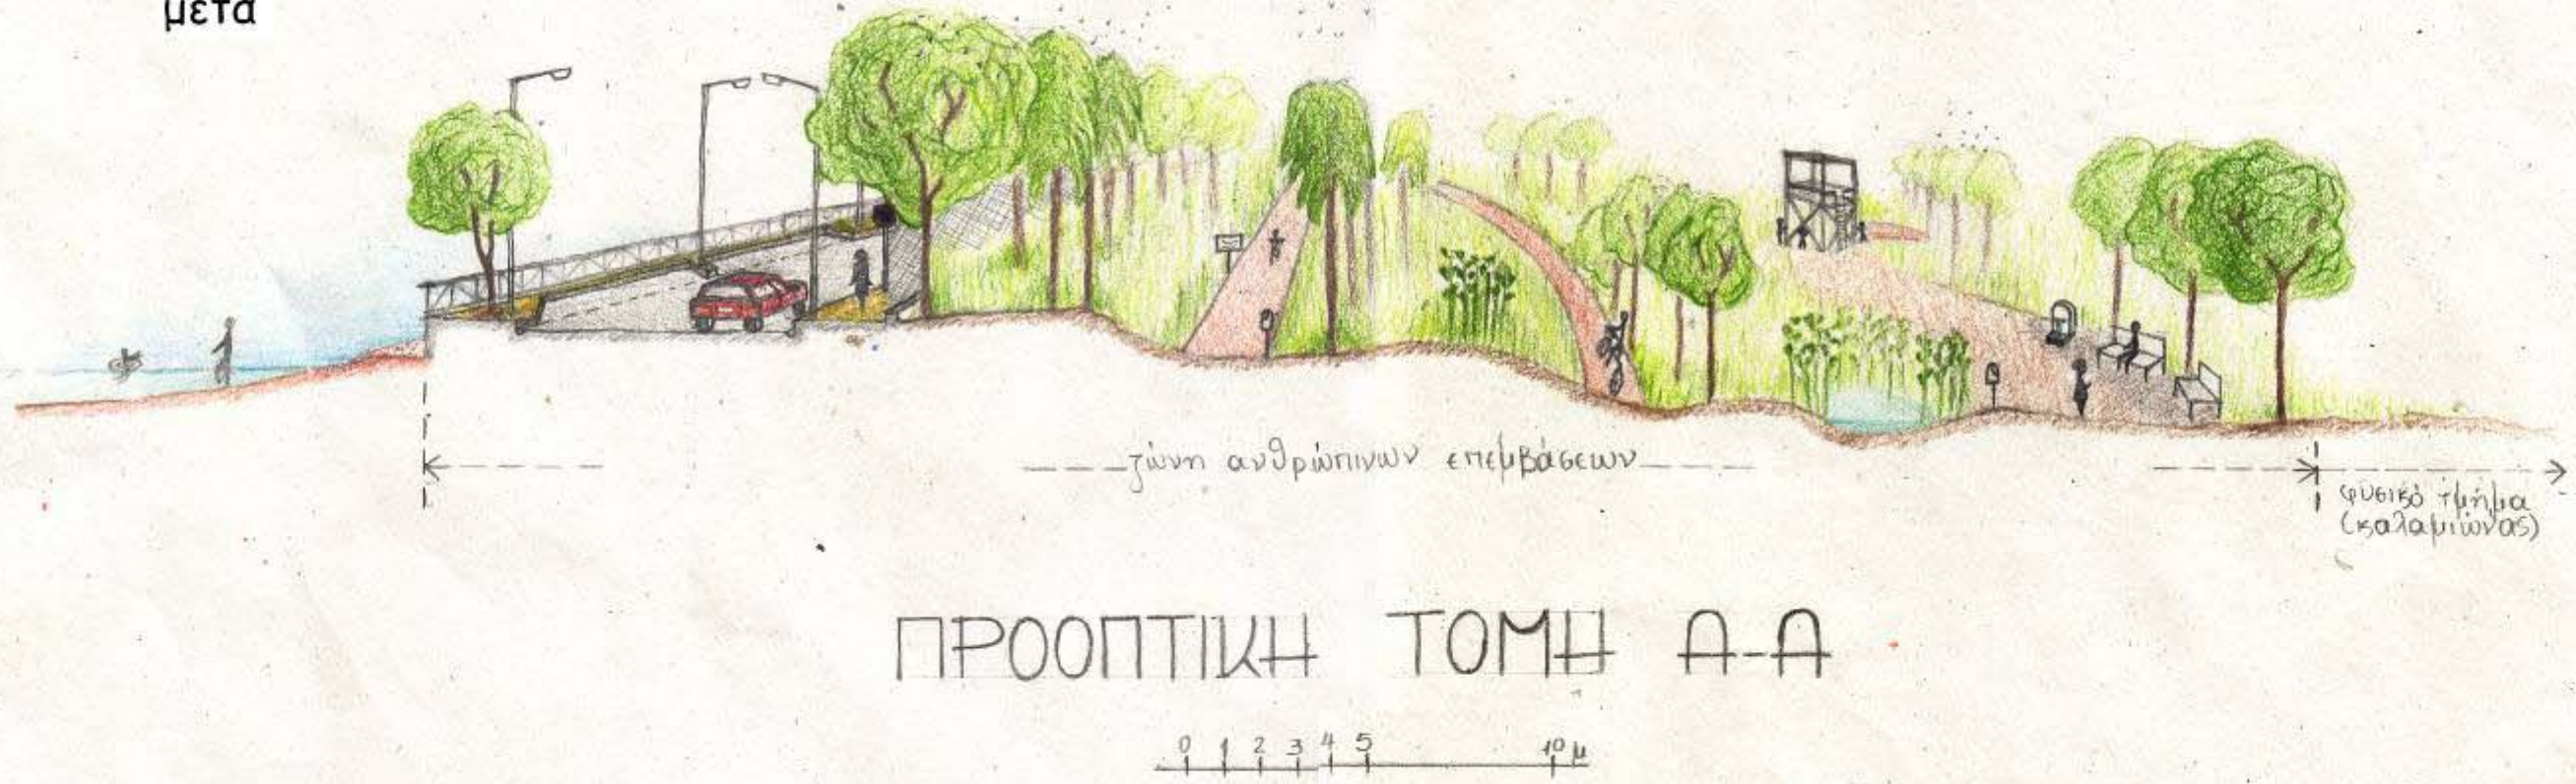 μετά
ζώνη ανθρώπινων επεμβάσεων
φυσικό τμήμα
(καλαμιώνας)
ΠΡΟΟΠΤΙΚΗ ΤΟΜΗ Α-Α
0 1 2 3 4 5 10 μ